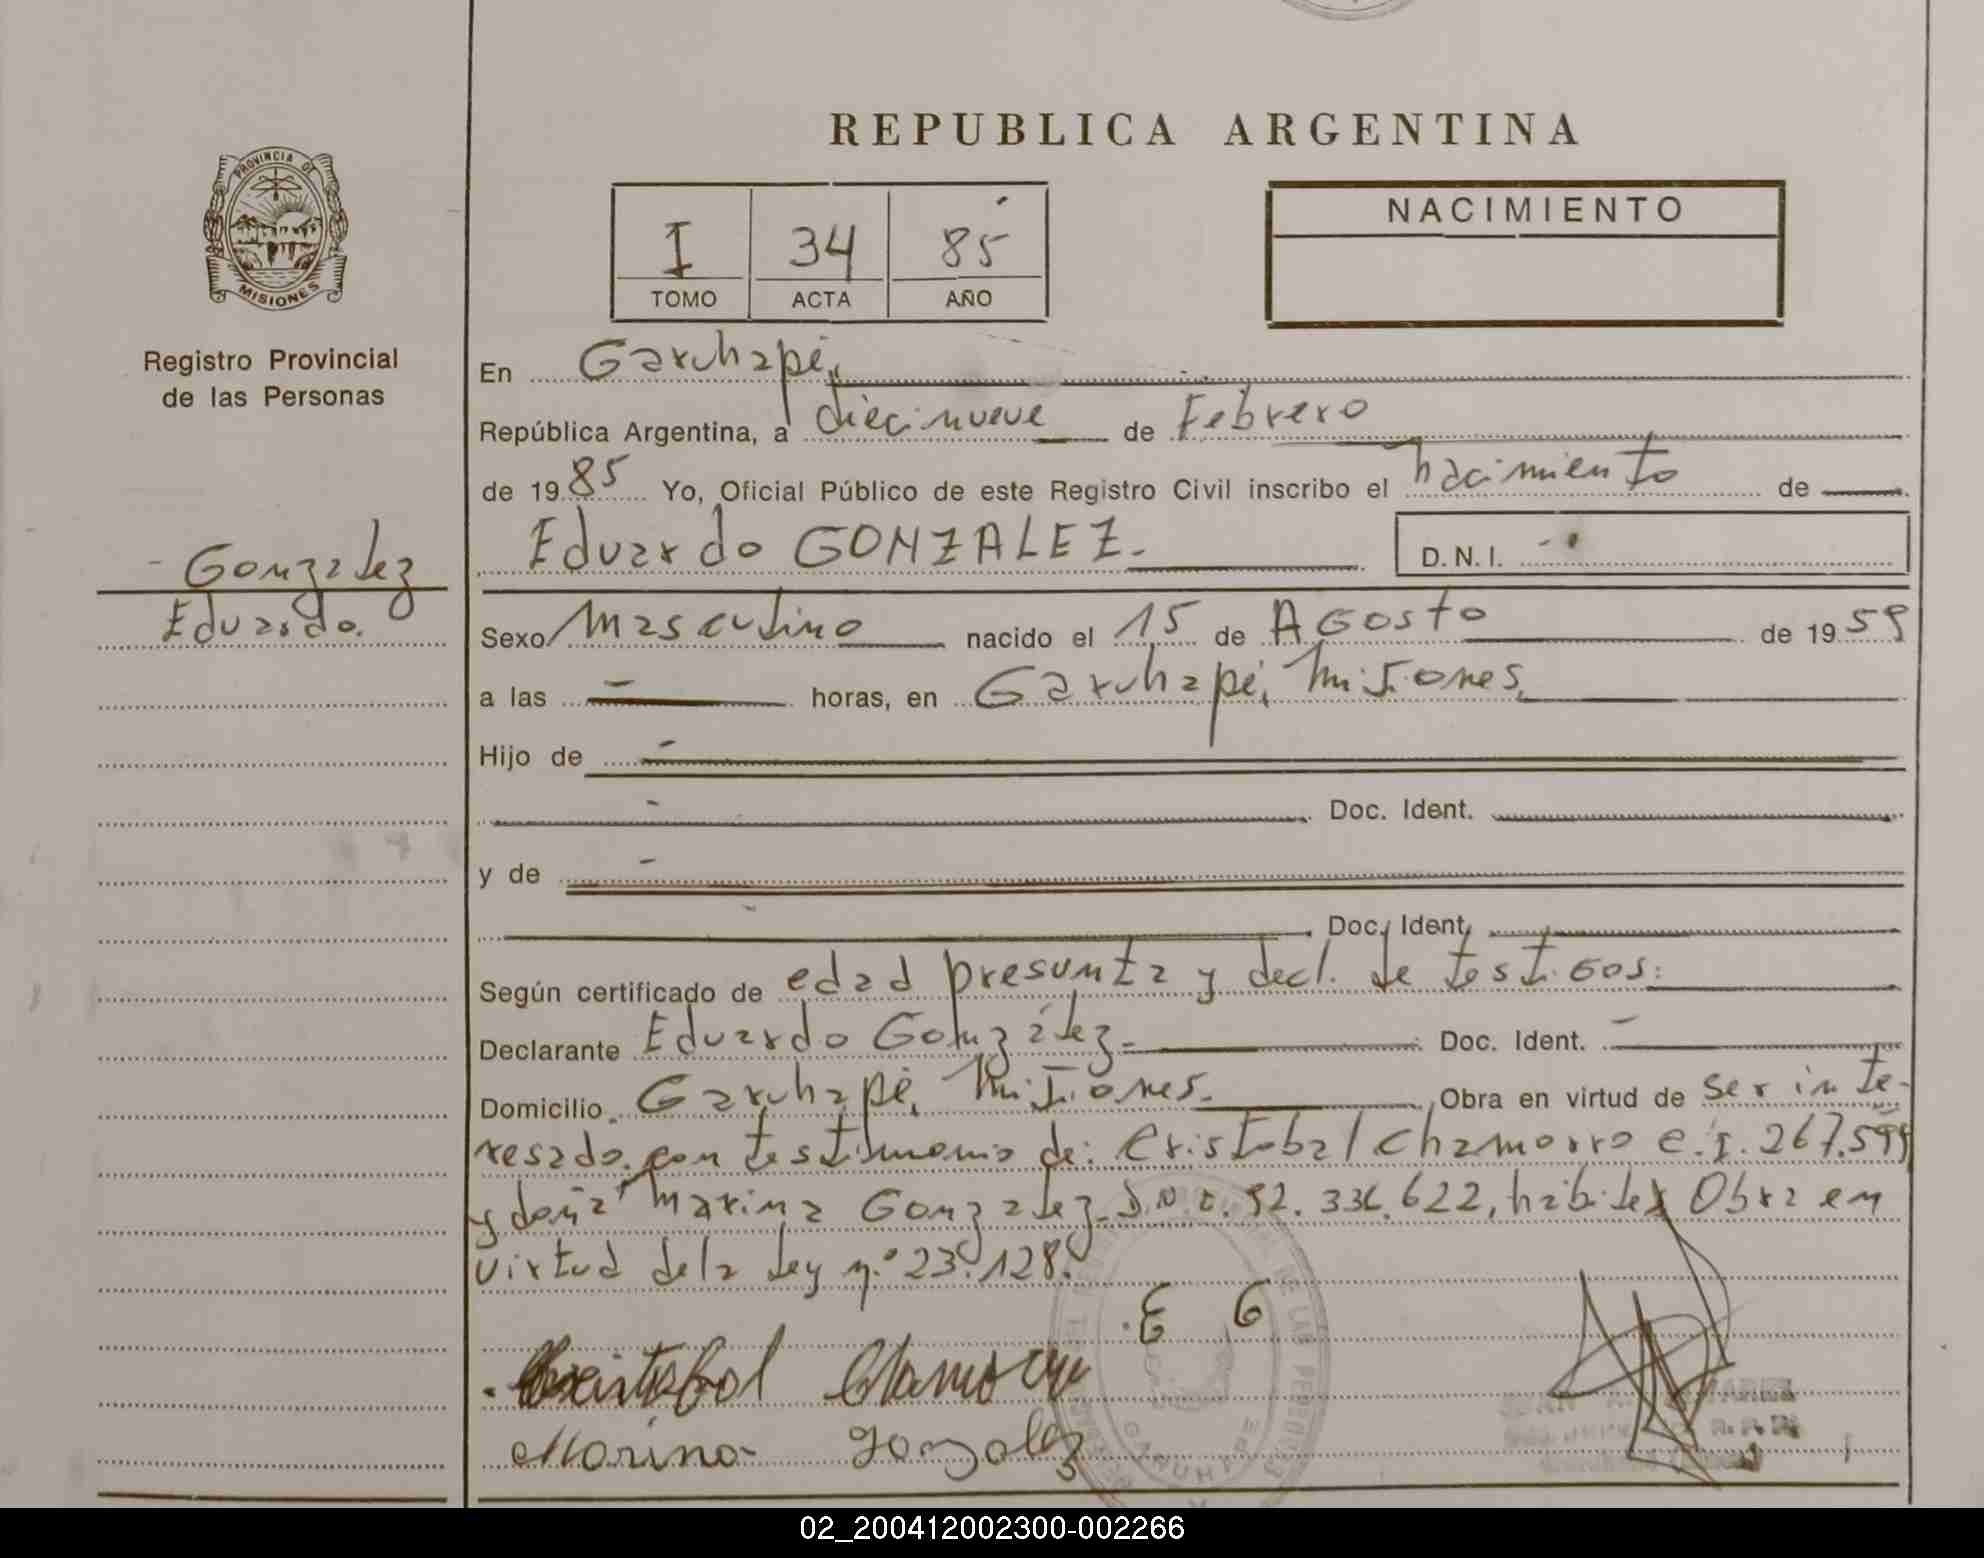 REPUBLICA ARGENTINA
PROVINCIA DE
MISIONES
Registro Provincial
de las Personas
I 34 85
TOMO ACTA AÑO
NACIMIENTO
En Garuhapé,
República Argentina, a diecinueve de Febrero
de 1985 Yo, Oficial Público de este Registro Civil inscribo el nacimiento de
Eduardo GONZALEZ.- D.N.I. -
- Gonzalez
Eduardo.
Sexo Masculino nacido el 15 de AGosto de 1959
a las - horas, en Garuhapé, Misiones,
Hijo de -
- Doc. Ident.
y de -
- Doc. Ident.
Según certificado de edad presunta y decl. de testigos:
Declarante Eduardo González.- Doc. Ident. -
Domicilio Garuhapé, Misiones.- Obra en virtud de ser inte-
resado. con testimonio de: Cristobal Chamorro C.I. 267.599
y doña Marina Gonzalez. D.N.I. 92.336.622, habiles Obra en
virtud de la Ley n.º 23.128.
E G
Cristobal Chamorro
Marina Gonzalez
DE LAS PERSONAS
GARUHAPE
02_200412002300-002266